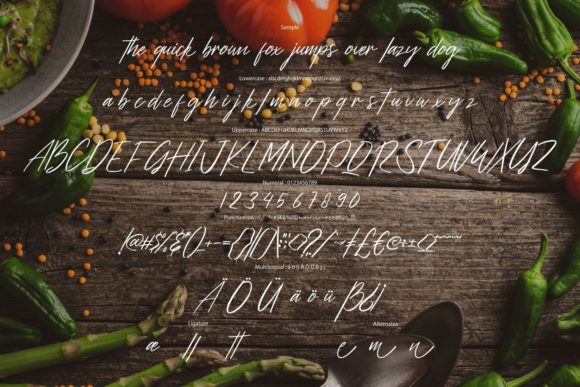 Sample
the quick brown fox jumps over lazy dog
Lowercase : abcdefghijklmnopqrstuvwxyz
abcdefghijklmnopqrstuvwxyz
Uppercase : ABCDEFGHIJKLMNOPQRSTUVWXYZ
ABCDEFGHIJKLMNOPQRSTUVWXYZ
Numeral : 0123456789
1234567890
Punctuation :
Multilingual : ä ö ü Ä Ö Ü ß
Ä Ö Ü ä ö ü
Ligature
Alternates
æ ll tt
e m n